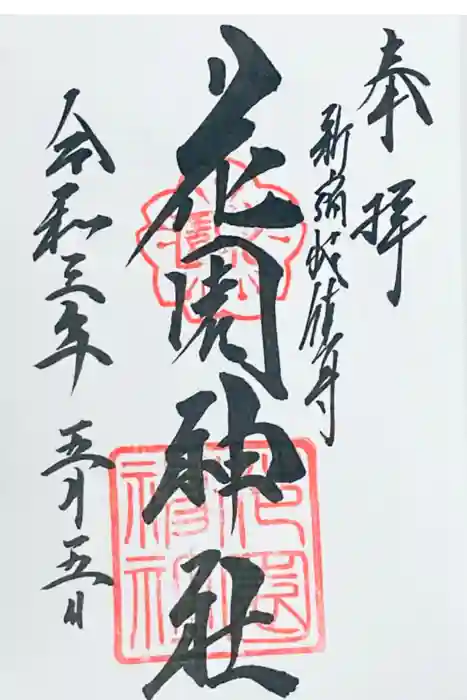 奉拝
新宿総鎮守
花園神社
令和三年 五月五日
花園神社